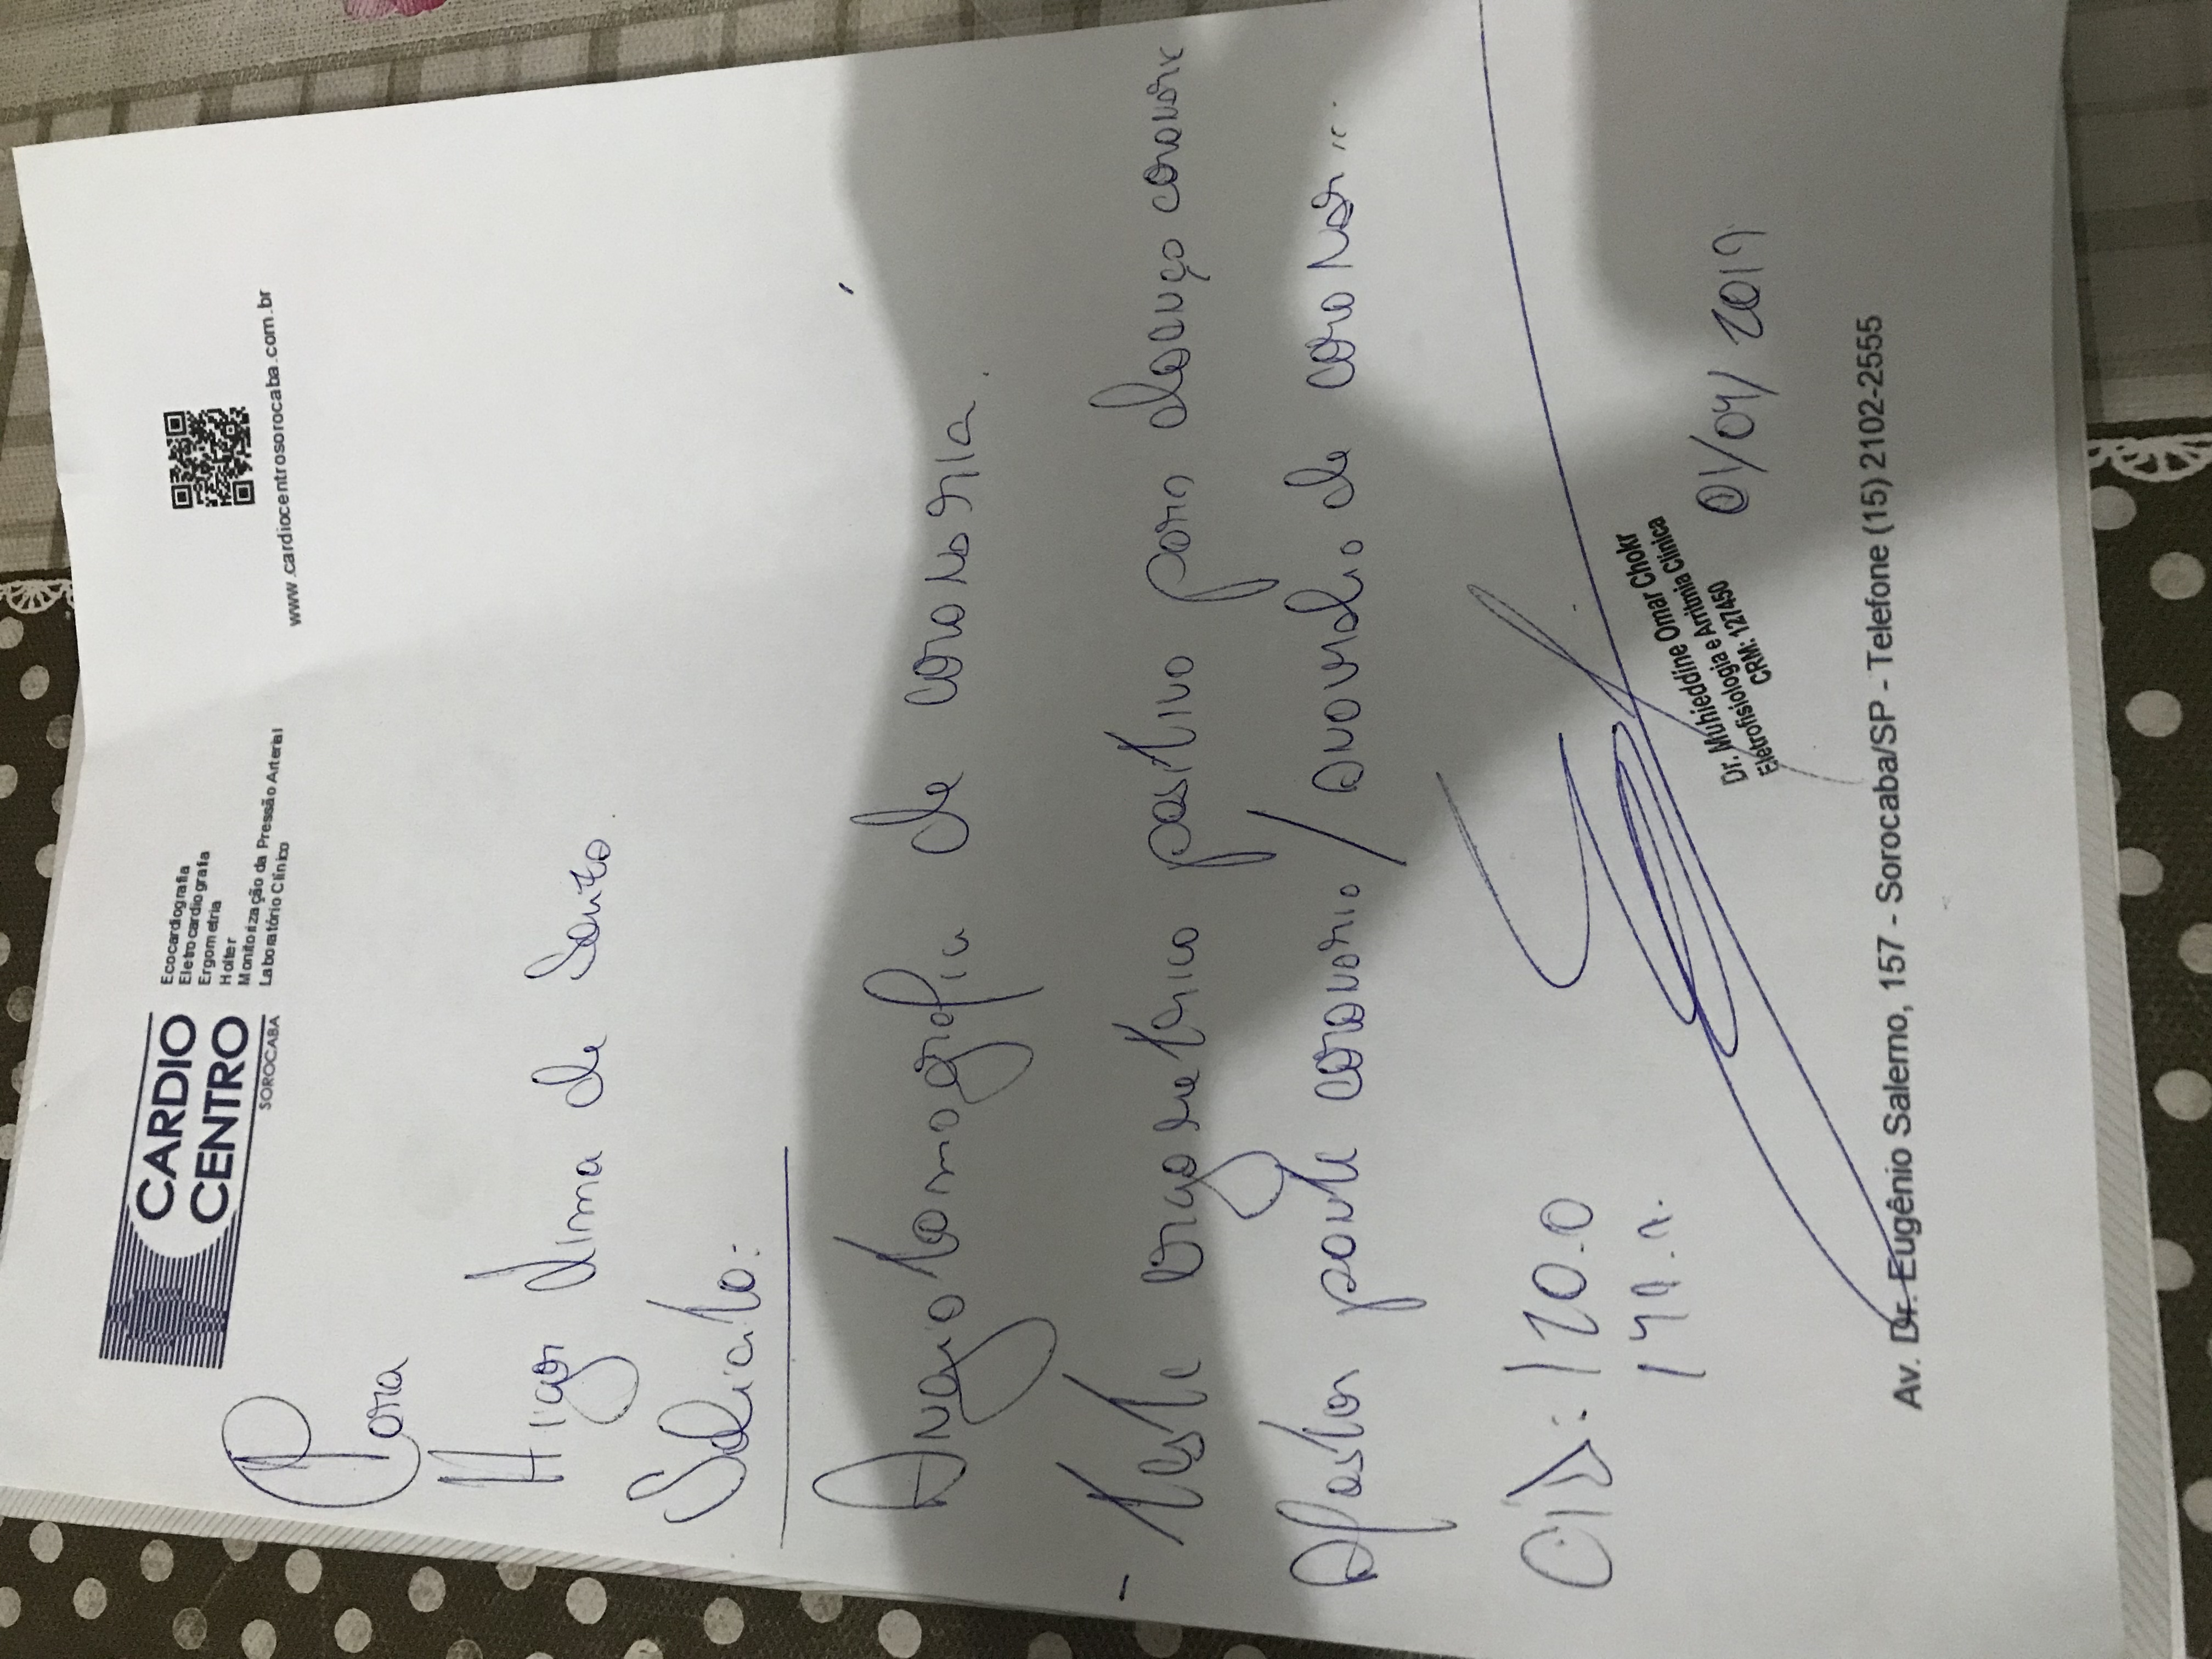 CARDIO
CENTRO
SOROCABA
Ecocardiografia
Eletrocardiografia
Ergometria
Holter
Monitorização da Pressão Arterial
Laboratório Clínico
www.cardiocentrosorocaba.com.br
Para
Higor Lima de Souza.
Solicito:
Angiotomografia de coronária.
- teste ergometrico positivo para doença coronaria
Afastar ponte coronaria / anomalia de coronaria
CID: I20.0
Dr. Muhieddine Omar Chokr
Eletrofisiologia e Arritmia Clínica
CRM: 127450
01/04/2019
Av. Dr. Eugênio Salerno, 157 - Sorocaba/SP - Telefone (15) 2102-2555